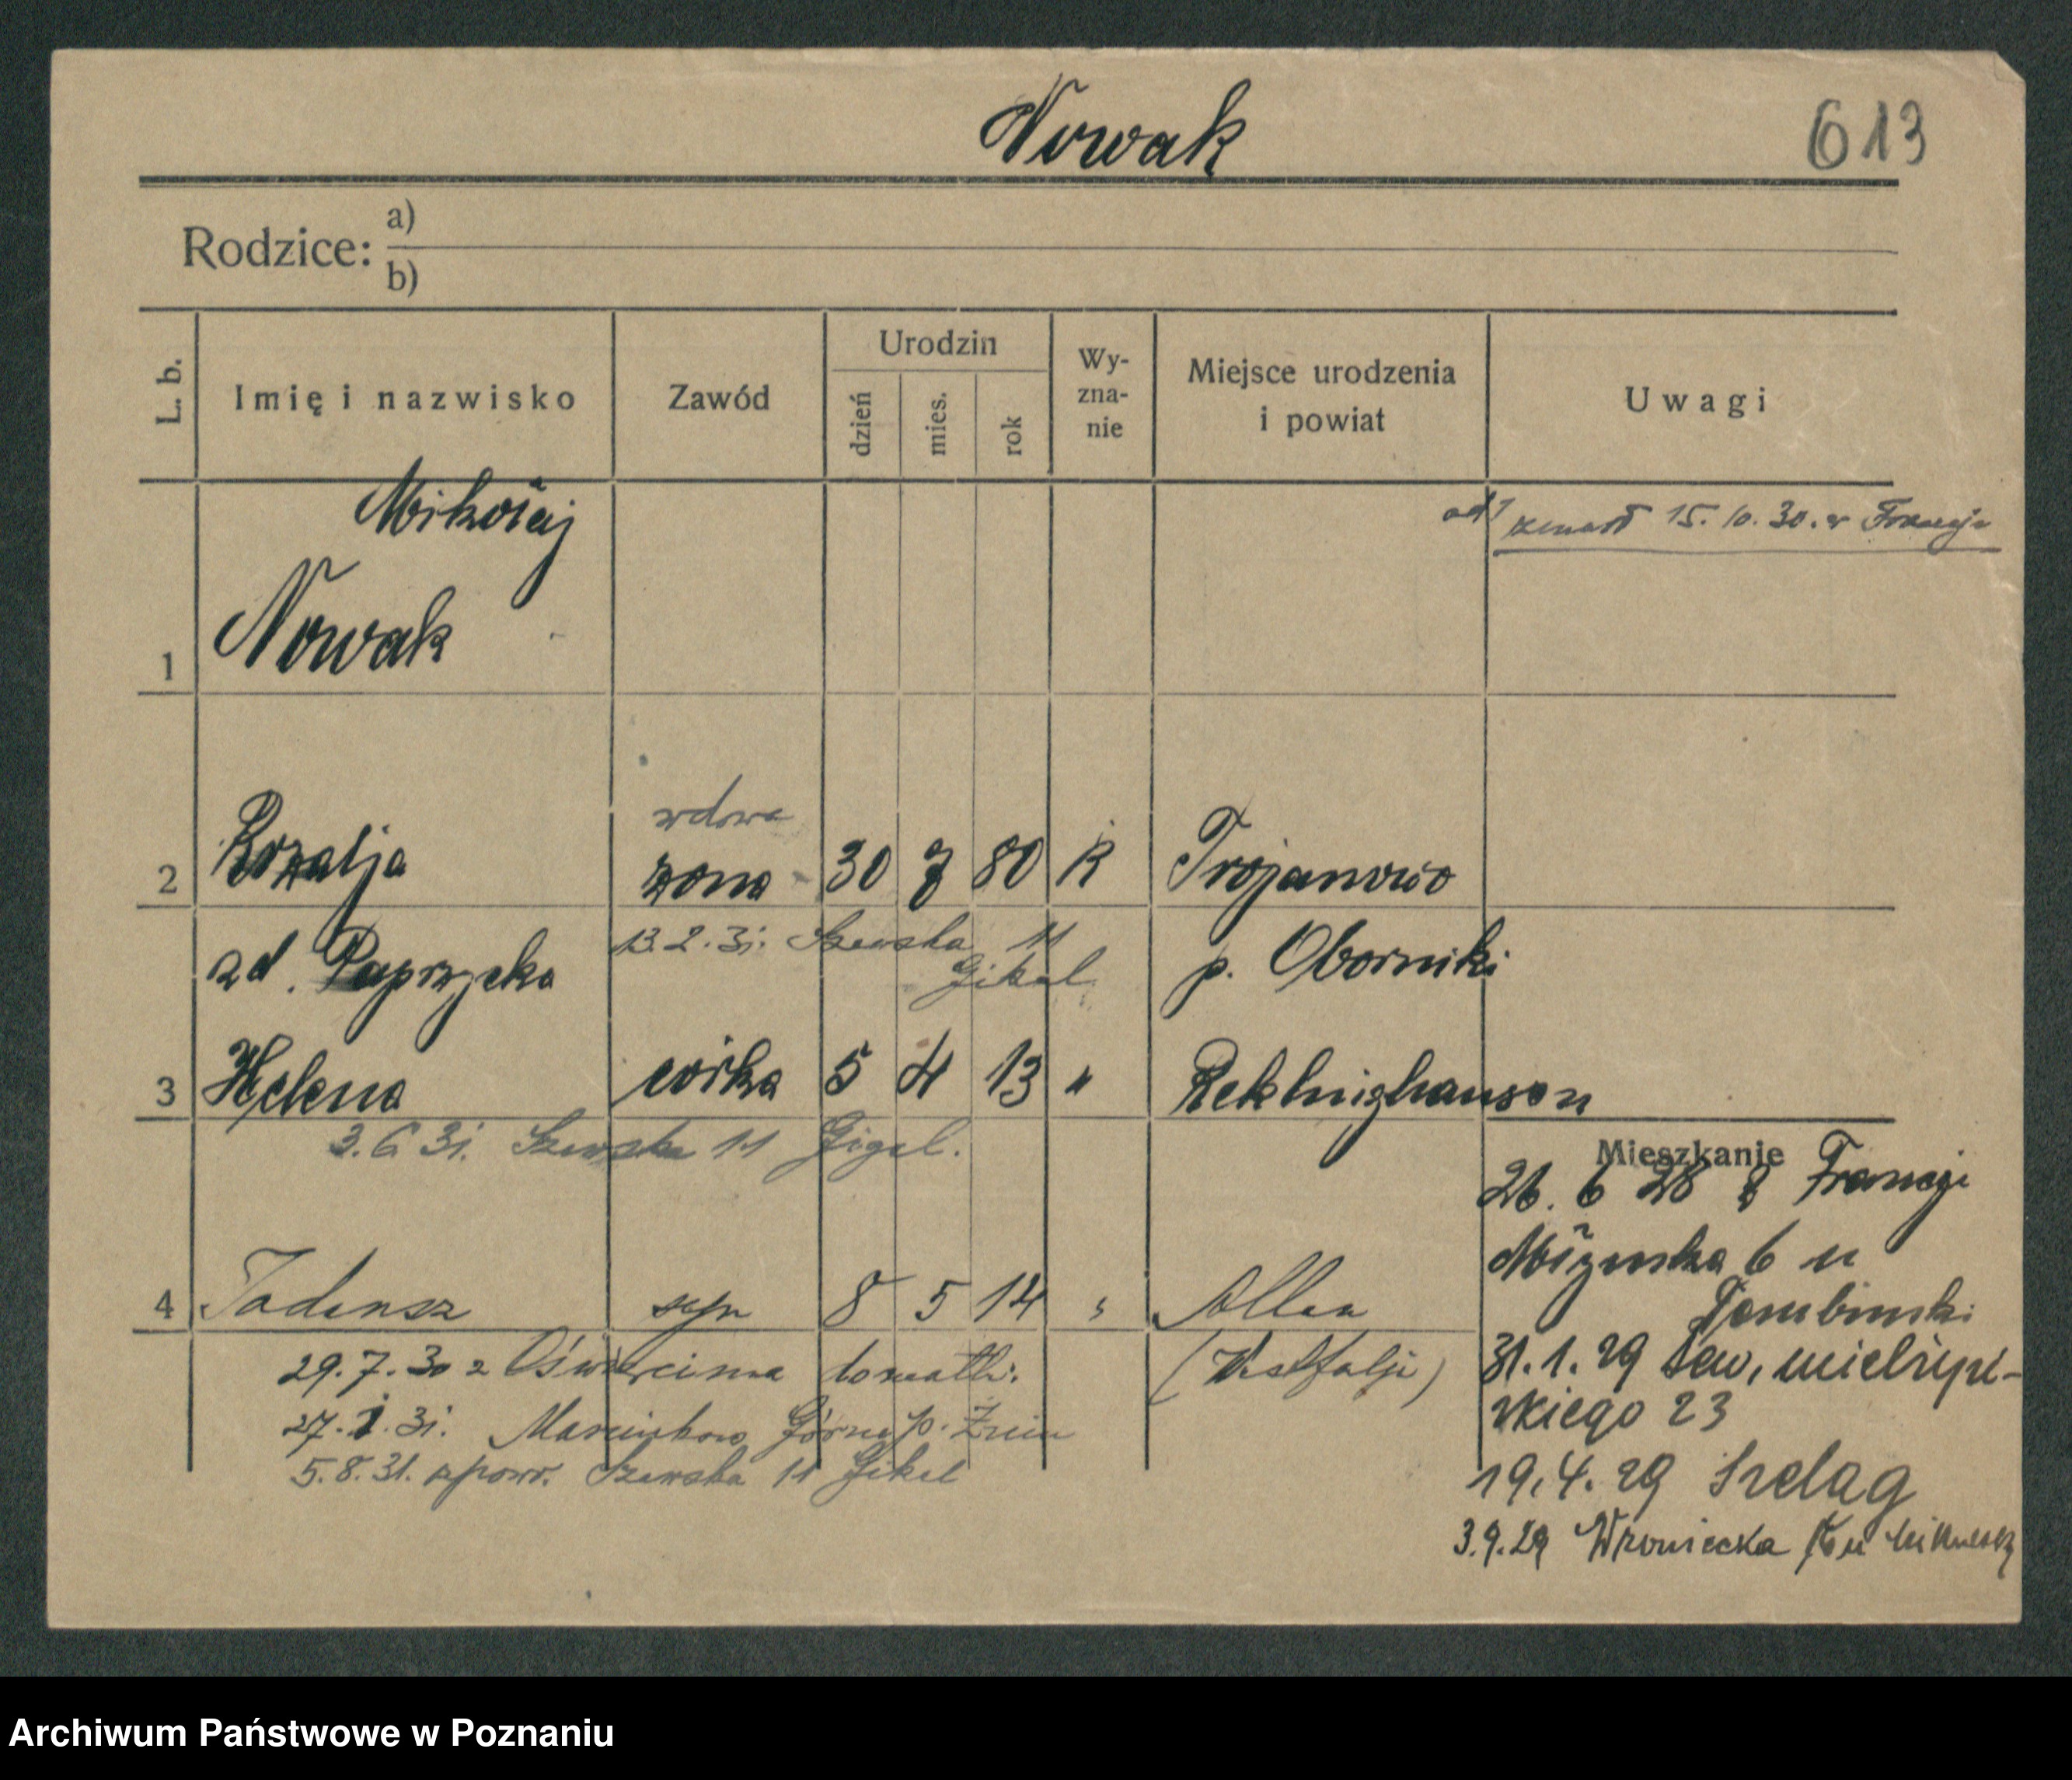 Nowak
613
Rodzice: a)
b)
L. b.
Imię i nazwisko
Zawód
Urodzin
dzień
mies.
rok
Wy-
zna-
nie
Miejsce urodzenia
i powiat
Uwagi
Mikołaj
ad 1 zmarł 15. 10. 30. w Francji
1 Nowak
wdowa
2 Rozalja żona 30 8 80 R Trojanowo
zd. Paprzycka
p. Oborniki
13. 2. 31. Szewska 11
Gikal
3 Helena córka 5 4 13 " Reklinghausen
3. 6. 31. Szewska 11 Gigel.
Mieszkanie
26. 6 28 z Francji
Młyńska 6 u
Dembinski
4 Tadeusz syn 8 5 14 " Allen
(Westfalja)
31. 1. 29 Sew. Mielżyń-
skiego 23
29. 7. 30 z Oświęcima do matki.
27. 1. 31. Marcinkowo Górne p. Żnin
5. 8. 31. z powr. Szewska 11 Gikel
19. 4. 29 Szeląg
3. 9. 29 Wroniecka
Archiwum Państwowe w Poznaniu